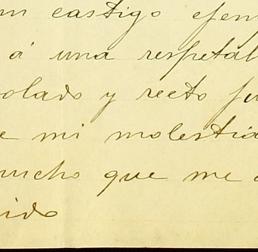 un castigo ejem
á una respetab
olado y recto ju
e mi molestia
mucho que me
ido